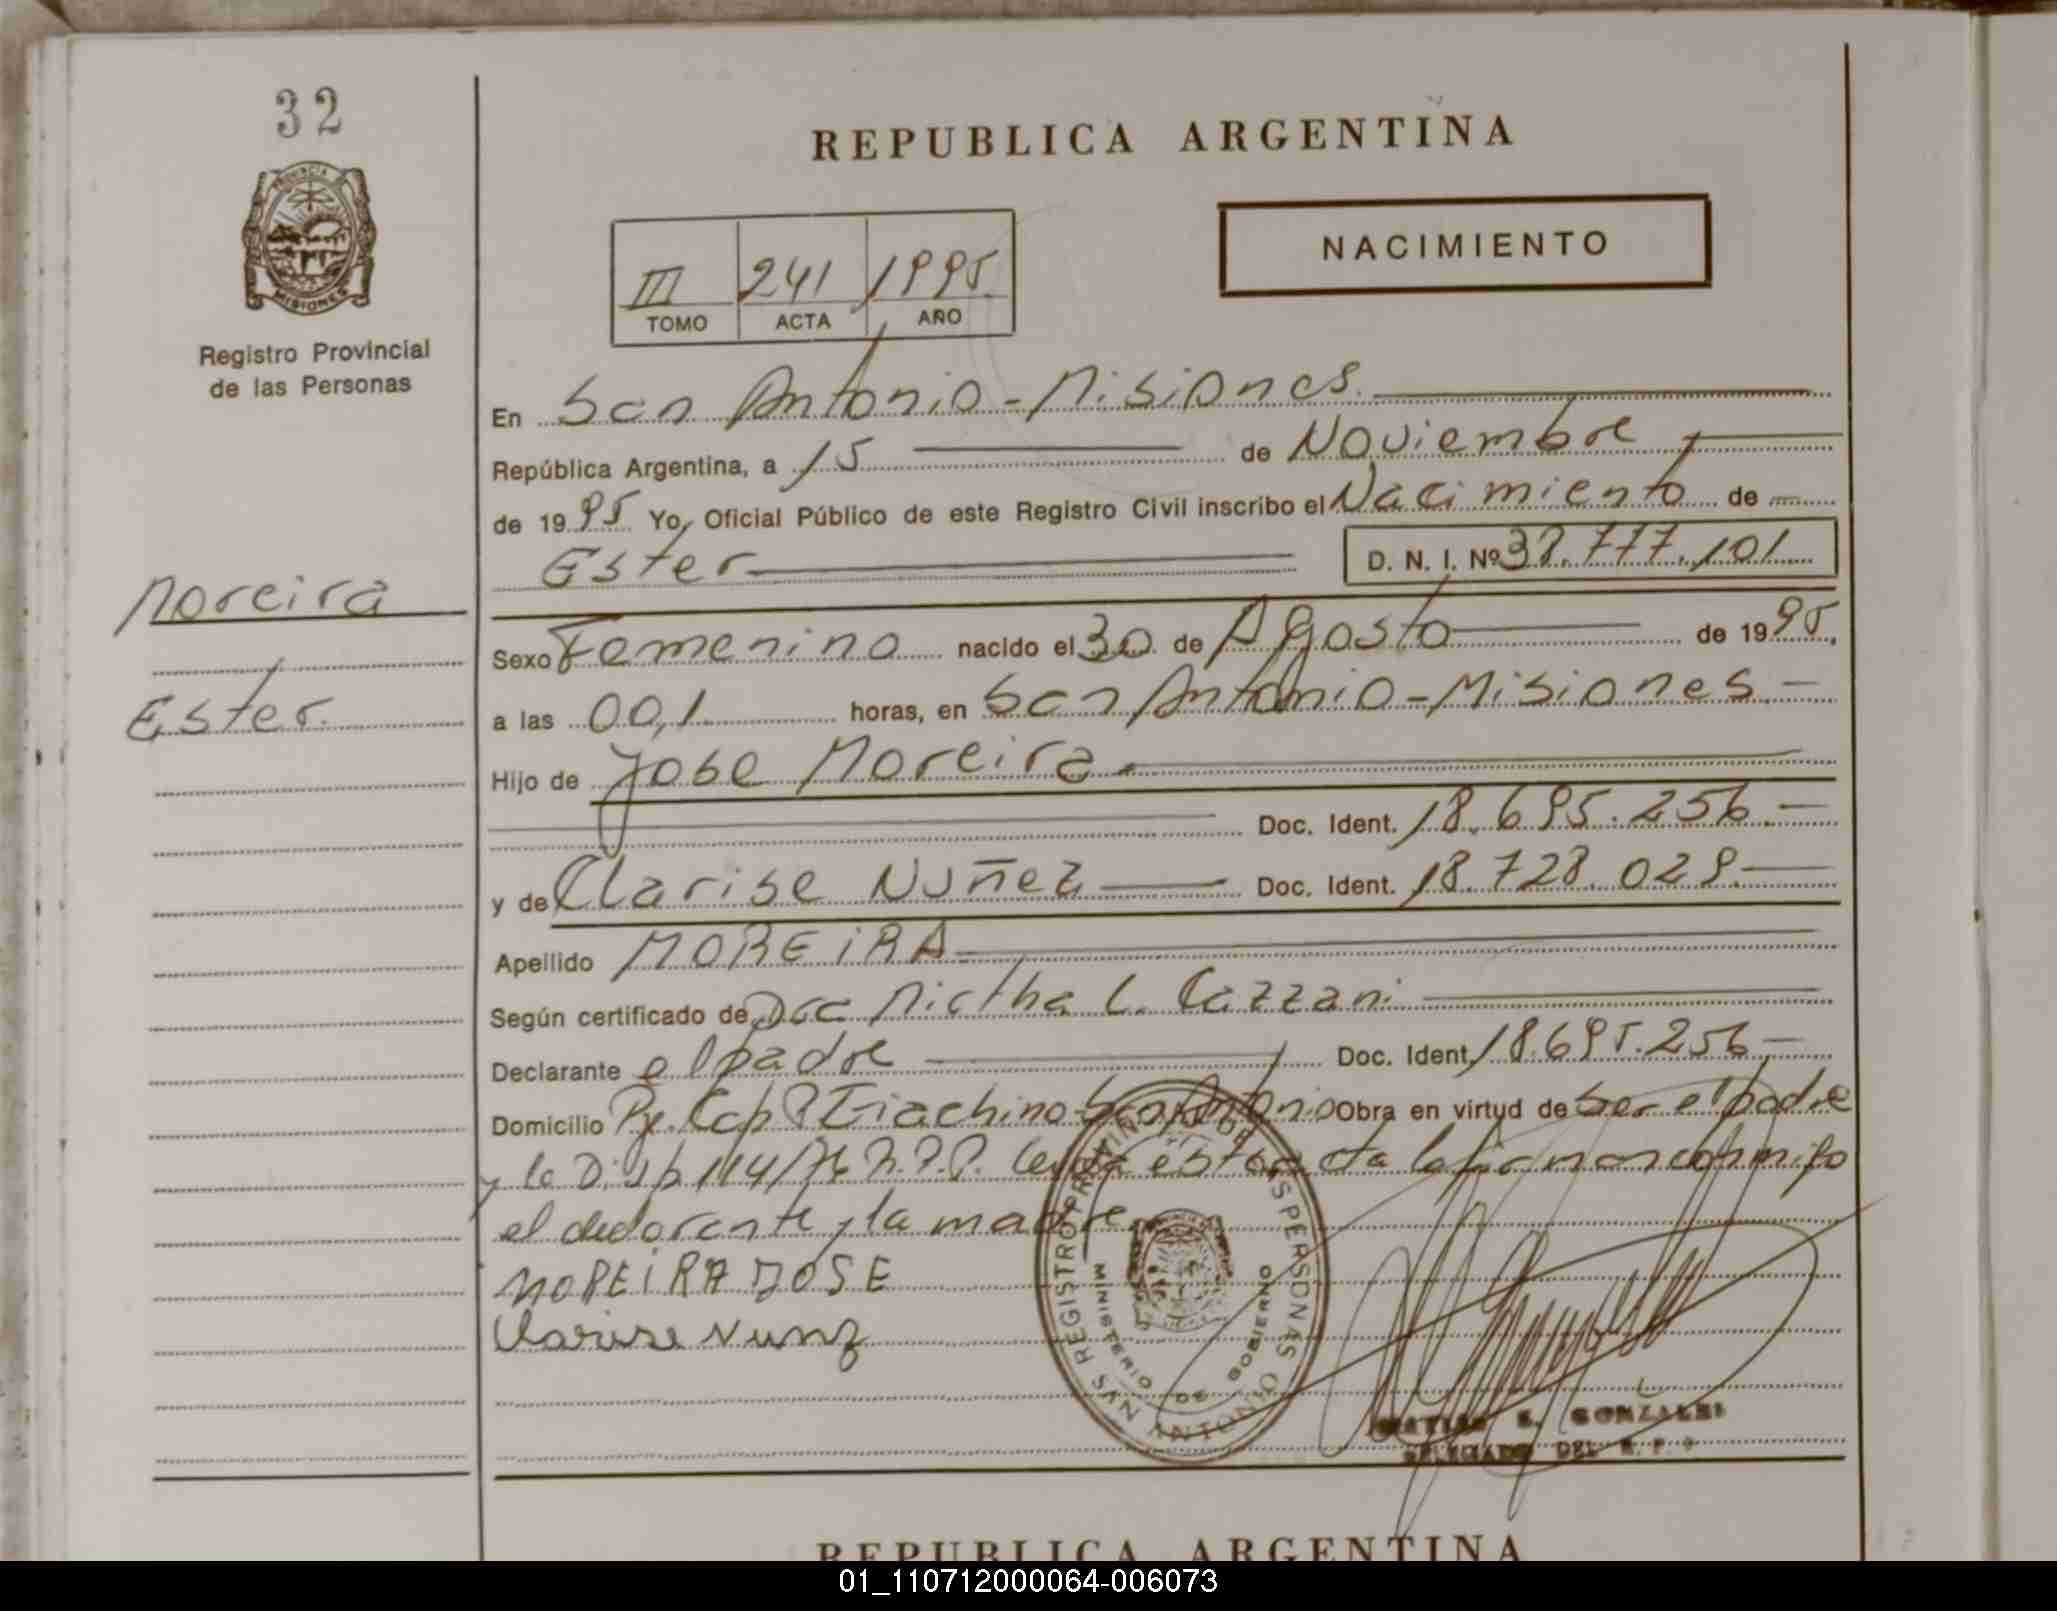 32
REPUBLICA ARGENTINA
PROVINCIA DE
MISIONES
Registro Provincial
de las Personas
III 241 1995
TOMO ACTA AÑO
NACIMIENTO
En San Antonio - Misiones.
República Argentina, a 15 de Noviembre
de 1995 Yo, Oficial Público de este Registro Civil inscribo el Nacimiento de
Ester D. N. I. Nº 38.777.101
Moreira
Ester.
Sexo Femenino nacido el 30 de Agosto de 1995,
a las 00,1 horas, en San Antonio - Misiones. -
Hijo de Jose Moreira
Doc. Ident. 18.695.256. -
y de Clarise Nuñez Doc. Ident. 18.728.029. -
Apellido MOREIRA
Según certificado de Dra Mirtha L. Cazzani
Declarante el padre Doc. Ident. 18.695.256 -
Domicilio Pje. Cap P Giachino San Antonio Obra en virtud de ser el padre
y la Disp 114/76 R.P.P. Leida esta acta la firman conmigo
el declarante y la madre
MOREIRA JOSE
Clarise Nunez
REGISTRO PROVINCIAL DE LAS PERSONAS
MINISTERIO DE GOBIERNO
SAN ANTONIO
S. GONZALES
DELEGADO DEL R. P.
REPUBLICA ARGENTINA
01_110712000064-006073